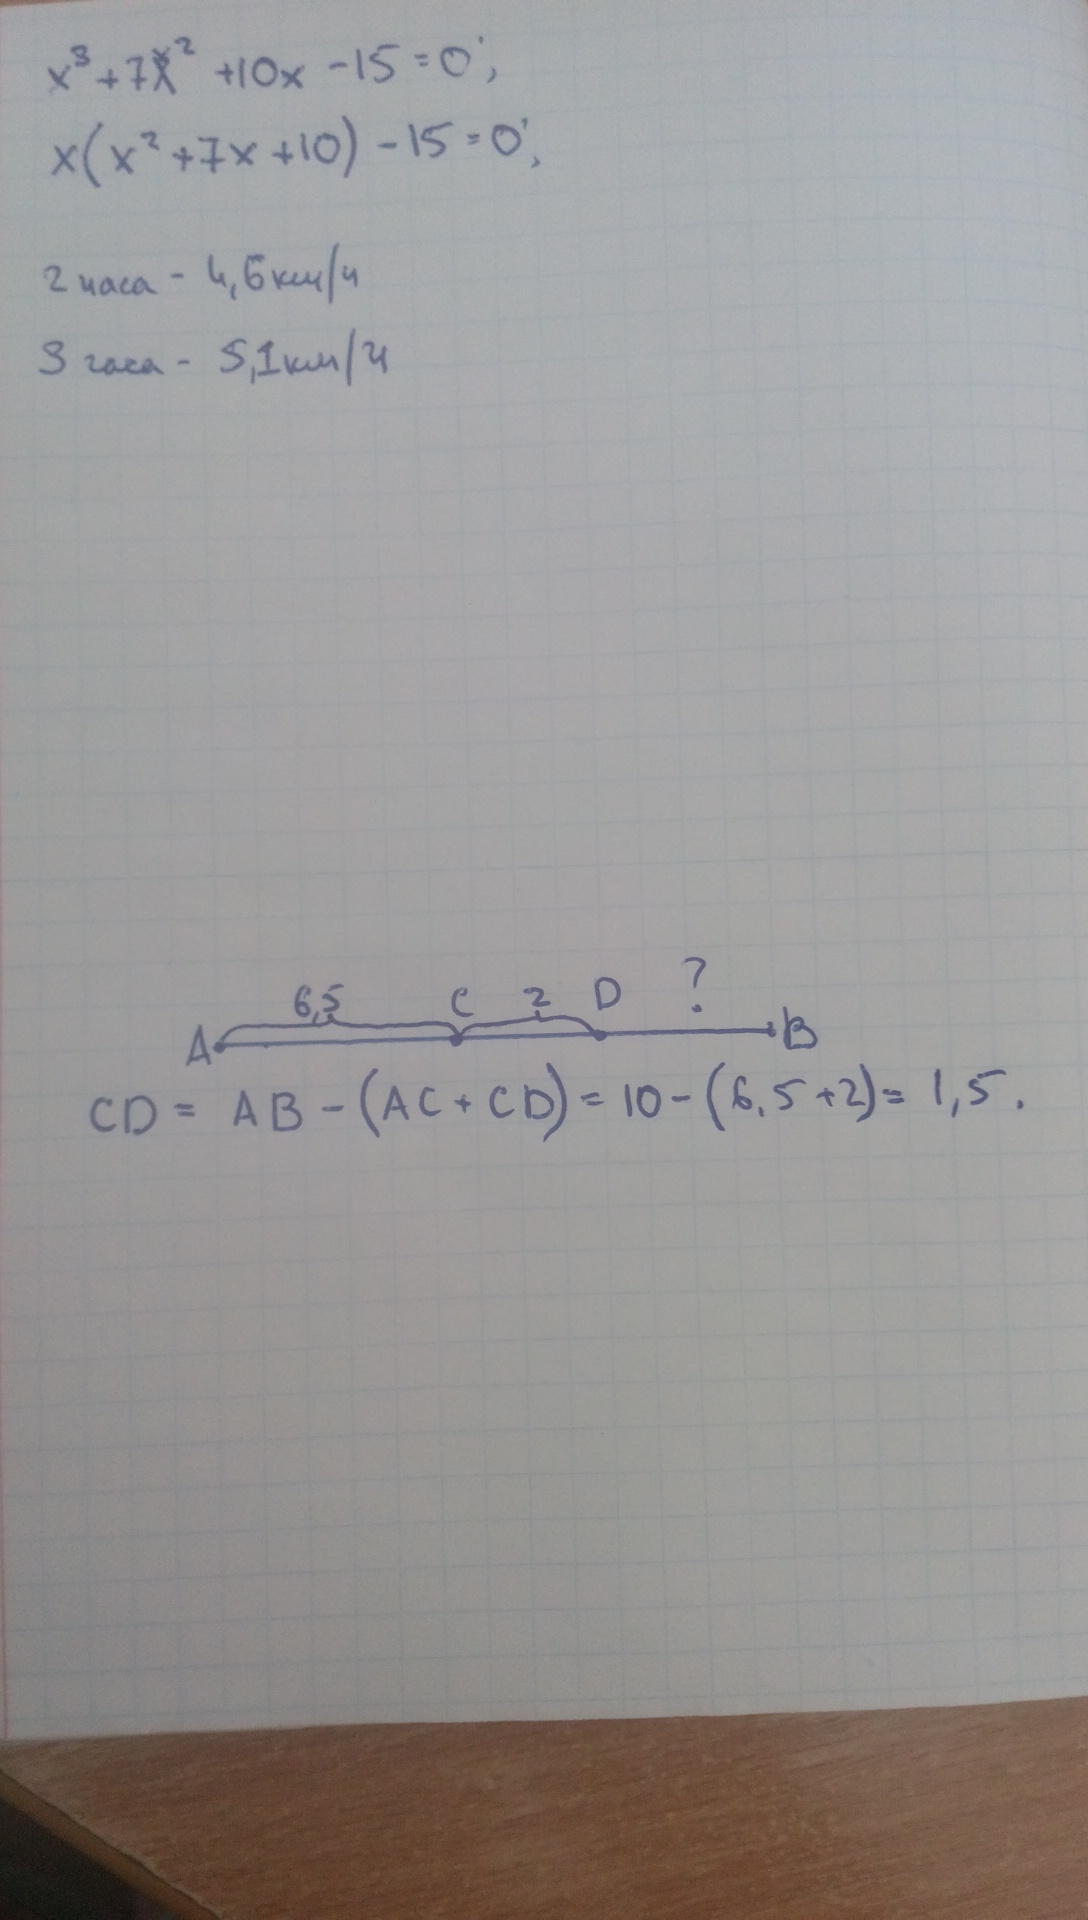 x³+7x²+10x-15=0;
x(x²+7x+10)-15=0;
2 часа - 4,6км/ч
3 часа - 5,1км/ч
6,5 C 2 D ?
A B
CD = AB-(AC+CD)=10-(6,5+2)=1,5.